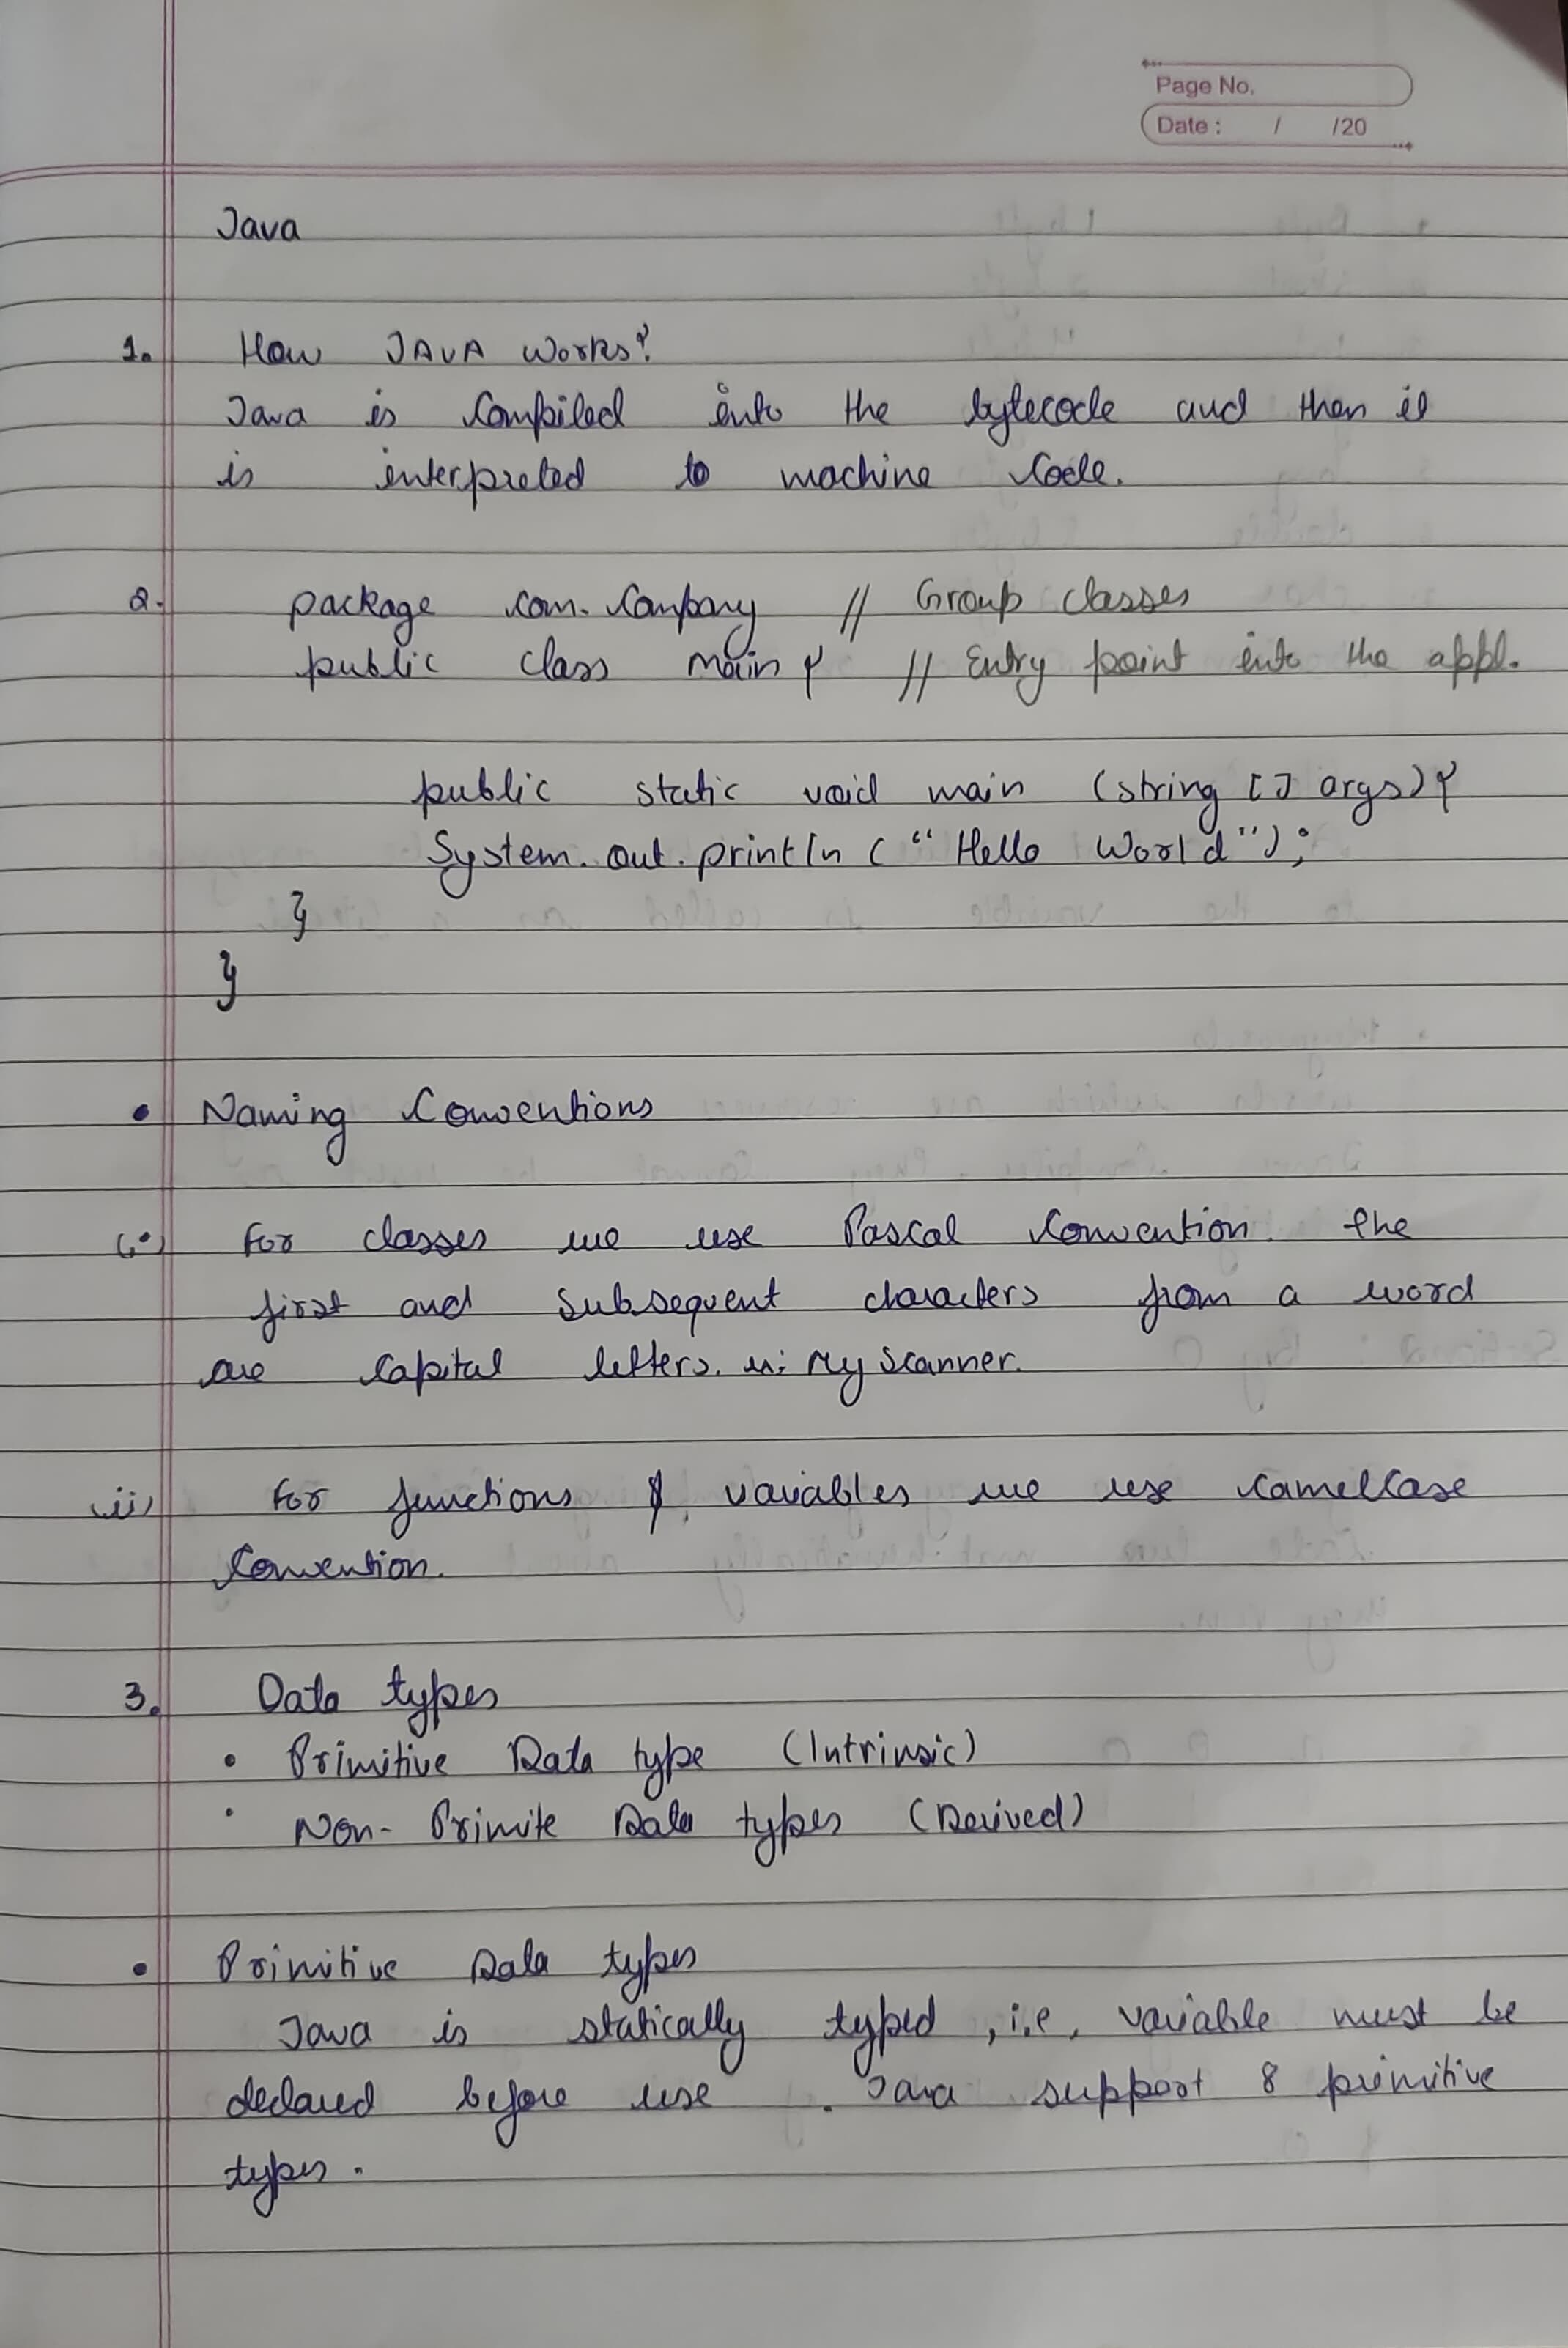 Page No.
Date : / /20
Java
1. How JAVA works?
Java is compiled into the bytecode and then it
is interpreted to machine code.
2. package com.Company // Group classes
public class main { // Entry point into the appl.
public static void main (string [] args) {
System.out.println ("Hello World");
}
}
• Naming Conventions
(i) For classes we use Pascal Convention. the
first and subsequent characters from a word
are capital letters. My Scanner.
(ii) For functions & variables we use camelCase
Convention.
3. Data types
• Primitive Data type (Intrinsic)
• Non-Primite Data types (Derived)
• Primitive Data types
Java is statically typed, i.e, variable must be
declared before use. Java support 8 primitive
types.